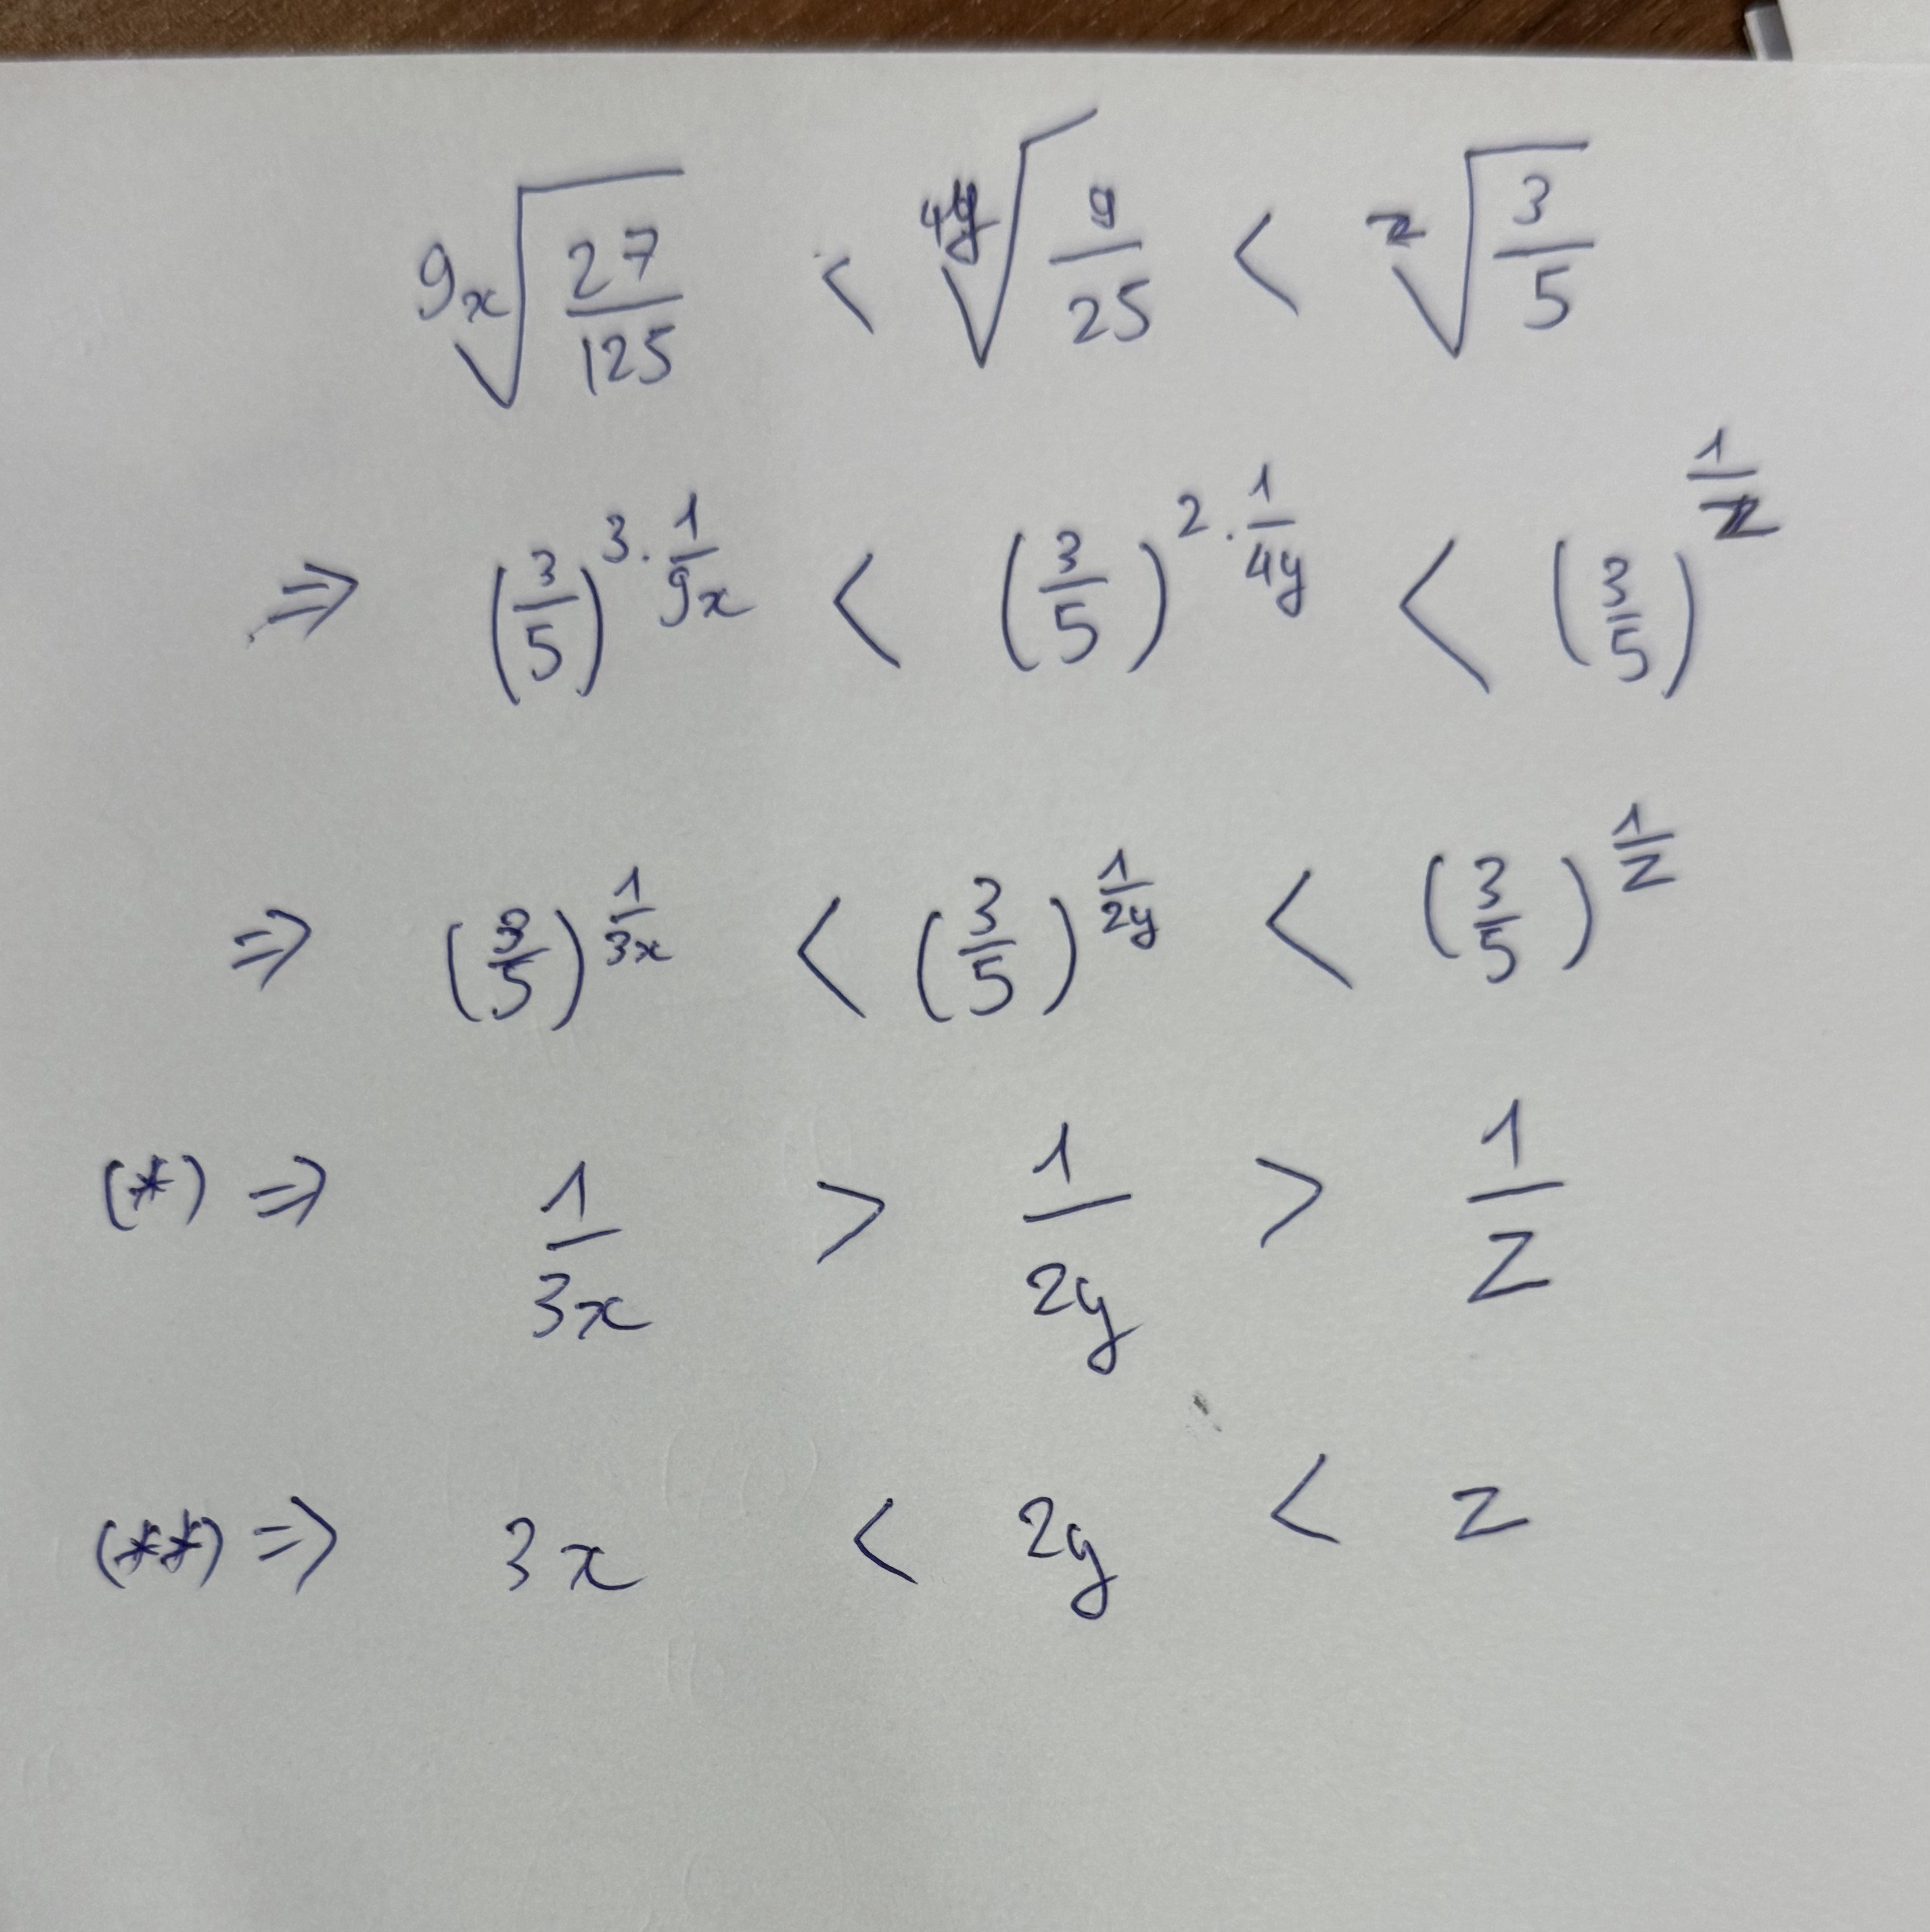 $\sqrt[9x]{\frac{27}{125}} < \sqrt[4y]{\frac{9}{25}} < \sqrt[z]{\frac{3}{5}}$
$\Rightarrow \left(\frac{3}{5}\right)^{3 \cdot \frac{1}{9x}} < \left(\frac{3}{5}\right)^{2 \cdot \frac{1}{4y}} < \left(\frac{3}{5}\right)^{\frac{1}{z}}$
$\Rightarrow \left(\frac{3}{5}\right)^{\frac{1}{3x}} < \left(\frac{3}{5}\right)^{\frac{1}{2y}} < \left(\frac{3}{5}\right)^{\frac{1}{z}}$
$(*) \Rightarrow \frac{1}{3x} > \frac{1}{2y} > \frac{1}{z}$
$(**) \Rightarrow 3x < 2y < z$